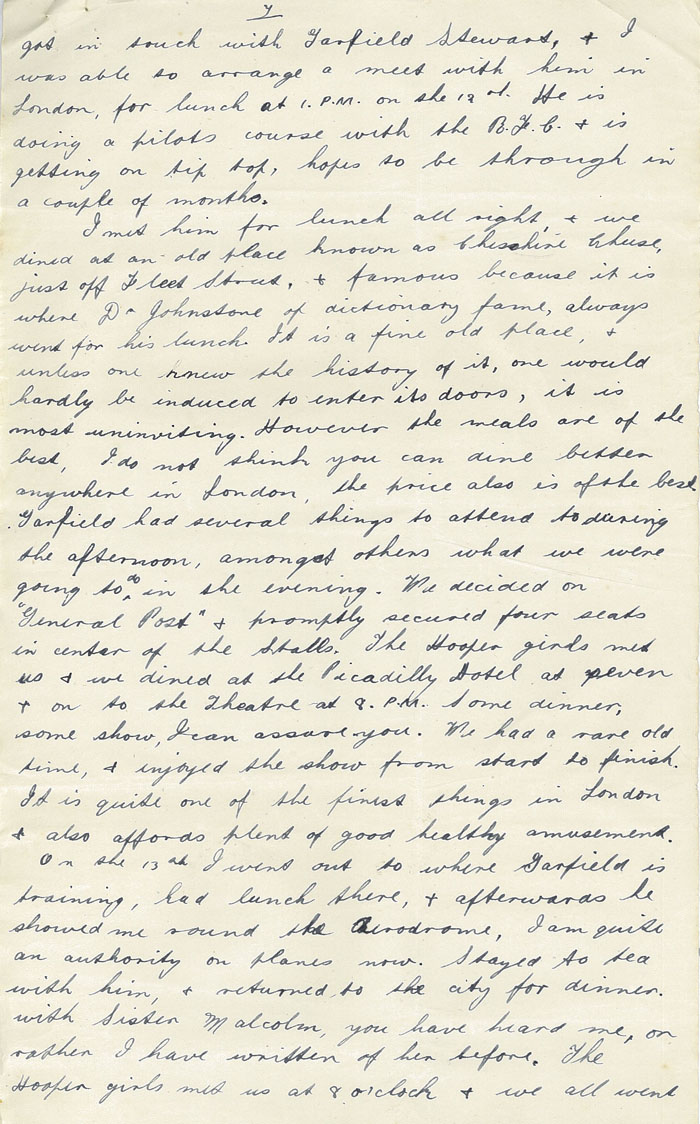 7
got in touch with Garfield Stewart, & I
was able to arrange a meet with him in
London, for lunch at 1. P.M. on the 12th. He is
doing a pilots course with the R.F.C. & is
getting on tip top, hopes to be through in
a couple of months.
I met him for lunch all right, & we
dined at an old place known as Cheschire Chuse,
just off Fleet Street, & famous because it is
where Dr Johnstone of dictionary fame, always
went for his lunch. It is a fine old place, &
unless one knew the history of it, one would
hardly be induced to enter its doors, it is
most uninviting. However the meals are of the
best, I do not think you can dine better
anywhere in London, the price also is of the best.
Garfield had several things to attend to during
the afternoon, amongst others what we were
going to do in the evening. We decided on
"General Post" & promptly secured four seats
in center of the Stalls. The Hooper girls met
us & we dined at the Picadilly Hotel at seven
& on to the Theatre at 8. P.M. Some dinner,
some show, I can assure you. We had a rare old
time, & injoyed the show from start to finish.
It is quite one of the finest things in London
& also affords plent of good healthy amusement.
On the 13th I went out to where Garfield is
training, had lunch there, & afterwards he
showed me round the Aerodrome, I am quite
an authority on planes now. Stayed to tea
with him, & returned to the city for dinner.
with Sister Malcolm, you have heard me, or
rather I have written of her before. The
Hooper girls met us at 8 o'clock & we all went